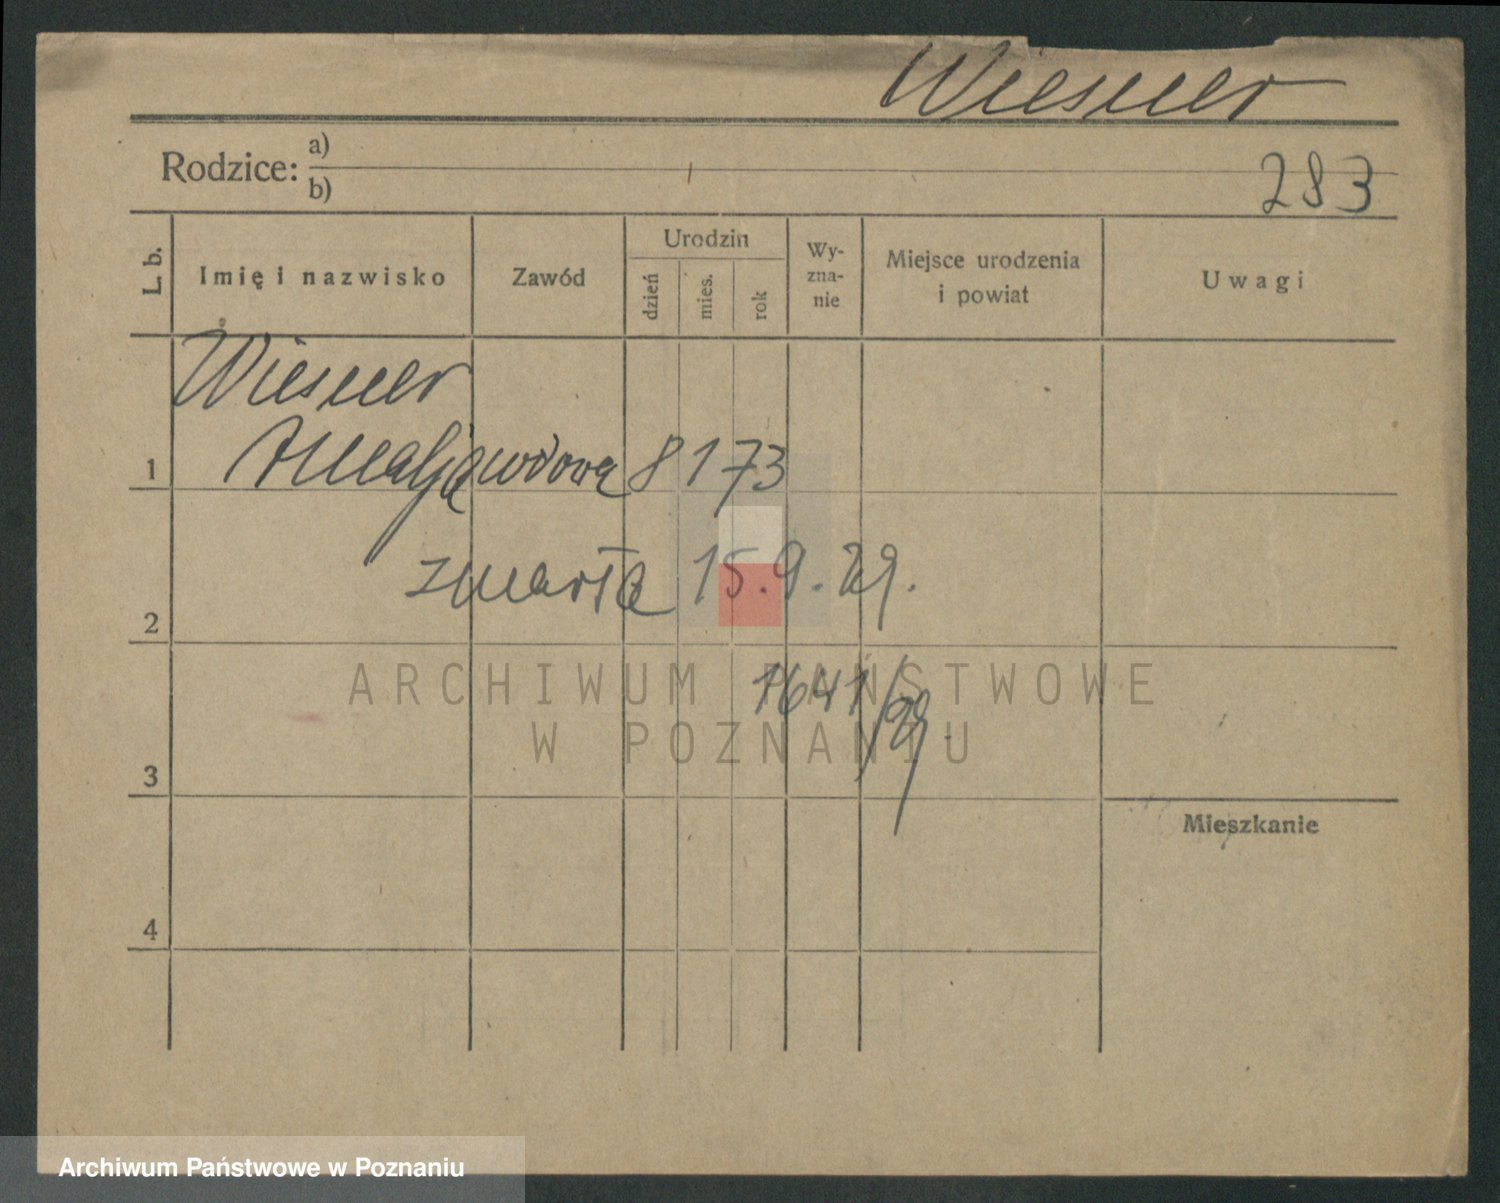 Wiesner
Rodzice: a)
b)
283
L. b.
Imię i nazwisko
Zawód
Urodzin
dzień
mies.
rok
Wy-
zna-
nie
Miejsce urodzenia
i powiat
Uwagi
Wiesner
1 Amalja wdowa 8 1 73
zmarła 15.9.29.
2
1641/29
ARCHIWUM PAŃSTWOWE
W POZNANIU
3
Mieszkanie
4
Archiwum Państwowe w Poznaniu